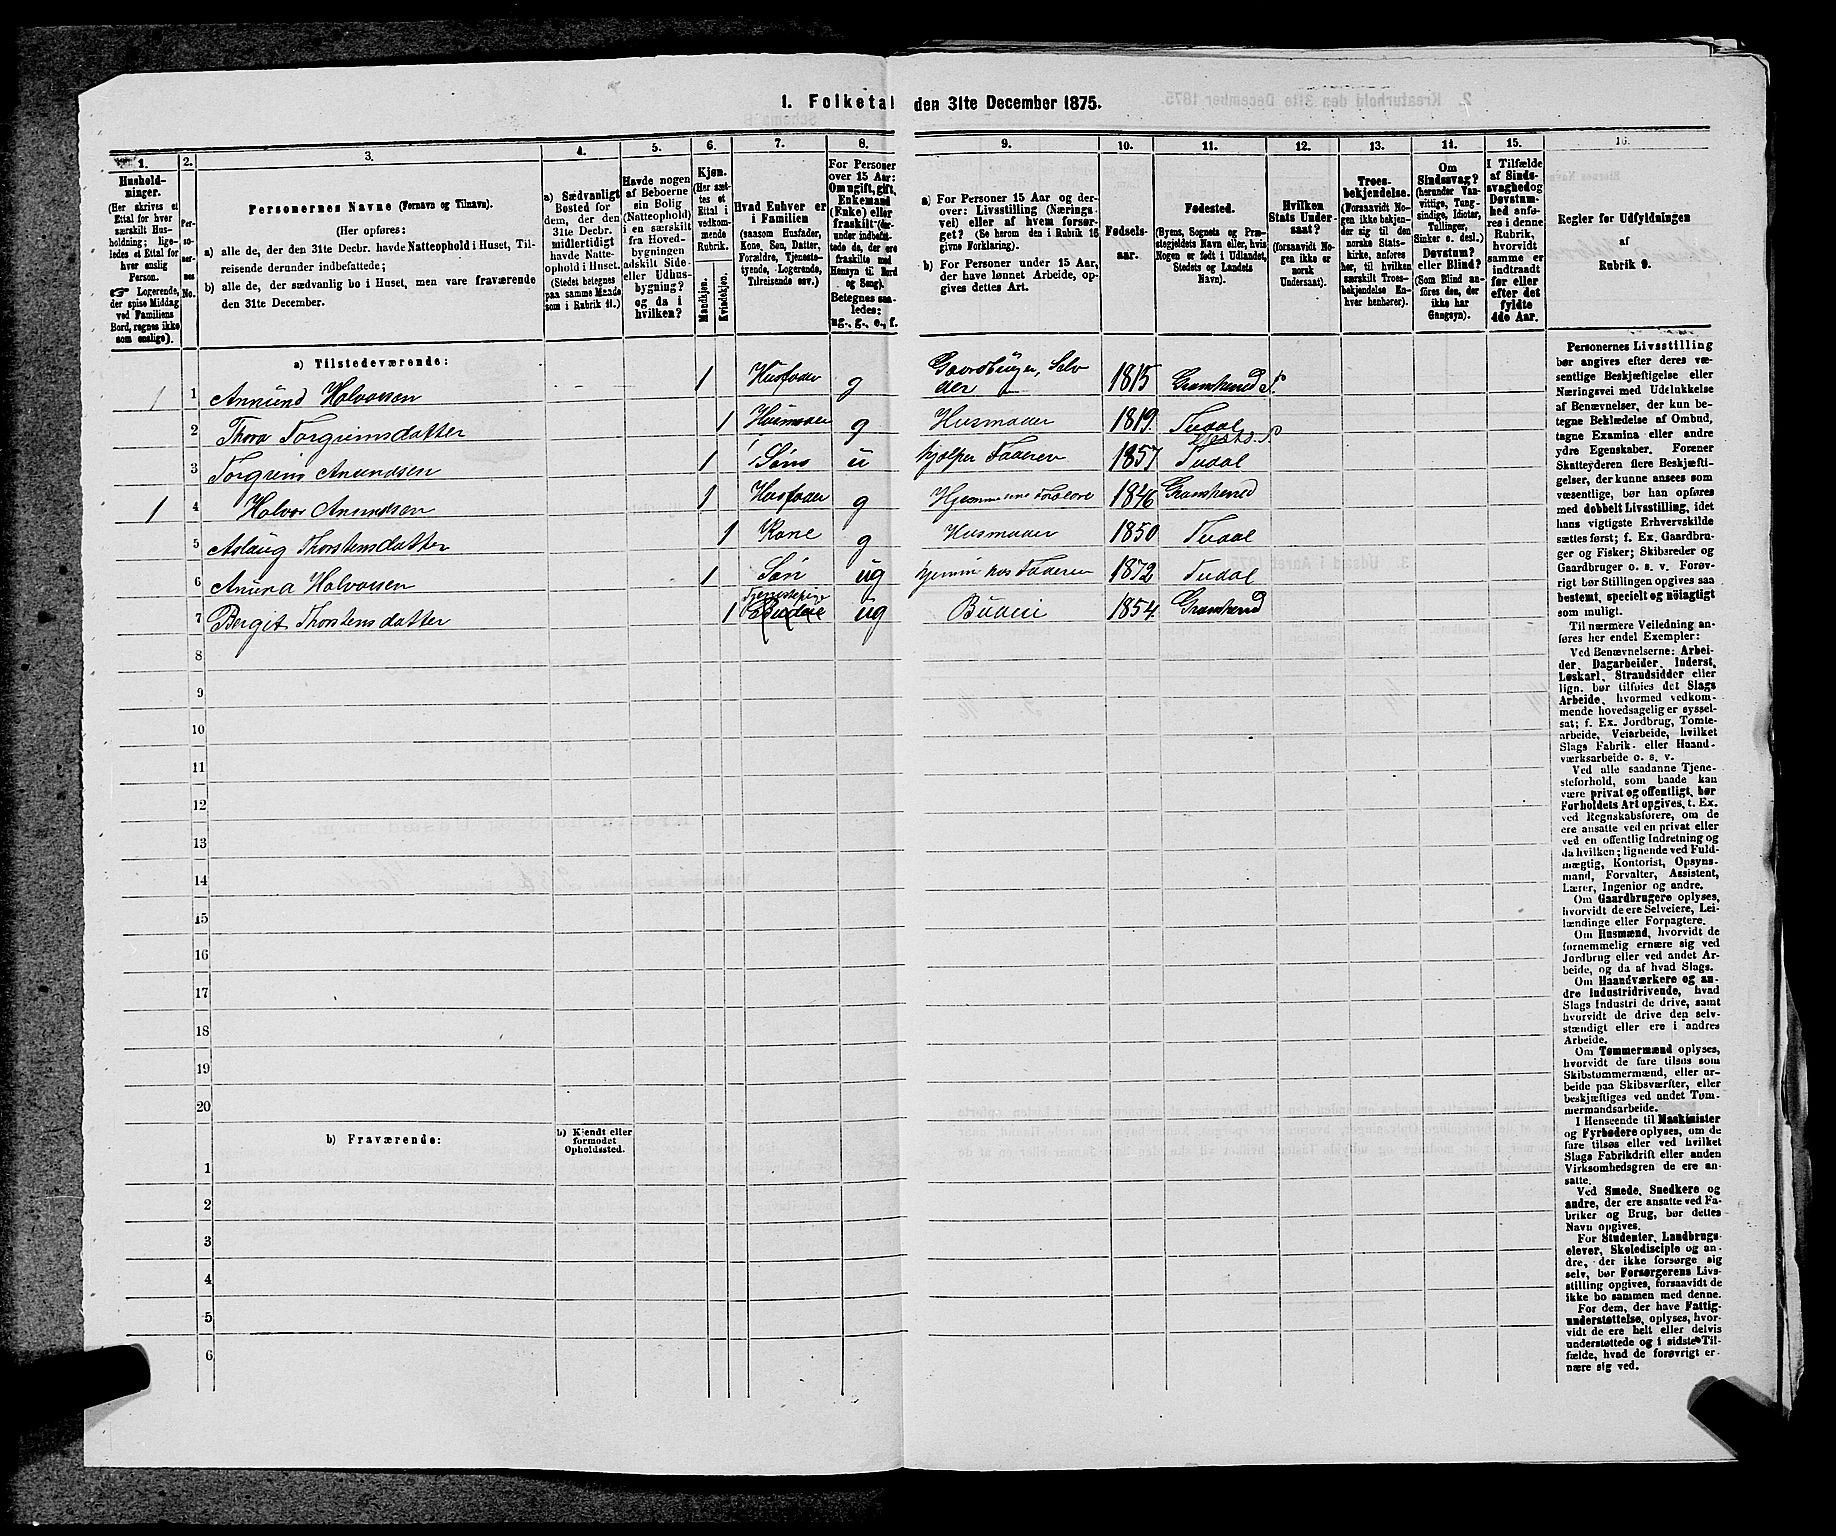 1. Folketal den 31te December 1875.
1. 2. 3. 4. 5. 6. 7. 8. 9. 10. 11. 12. 13. 14. 15. 16.
Hushold-
ninger.
(Her skrives et
Ettal for hver
særskilt Hus-
holdning; lige-
ledes et Ettal for
hver enslig
Person.
☞ Logerende,
der spise Middag
ved Familiens
Bord, regnes ikke
som enslige).
Per-
so-
ner-
nes
No.
Personernes Navne (Fornavn og Tilnavn).
(Her opføres:
a) alle de, der den 31te Decbr. havde Natteophold i Huset, Til-
reisende derunder indbefattede;
b) alle de, der sædvanlig bo i Huset, men vare fraværende
den 31te December.
a) Sædvanligt
Bosted for
dem, der den
31te Decbr.
midlertidigt
havde Natte-
ophold i Huset.
(Stedet betegnes
paa samme Maade
som i Rubrik 11.)
Havde nogen
af Beboerne
sin Bolig
(Natteophold)
i en særskilt
fra Hoved-
bygningen
adskilt Side-
eller Udhus-
bygning?
og da i
hvilken?
Kjøn.
(Her sæt-
tes et
Ettal i
vedkom-
mende
Rubrik.
Mandkjøn.
Kvindekjøn.
Hvad Enhver er
i Familien
(saasom Husfader,
Kone, Søn, Datter,
Forældre, Tjeneste-
tyende, Logerende,
Tilreisende osv.)
For Personer
over 15 Aar:
Om ugift, gift,
Enkemand
(Enke) eller
fraskilt (her-
under indbefat-
tede de, der ere
fraskilte med
Hensyn til Bord
og Seng).
Betegnes saa-
ledes:
ug., g., e., f.
a) For Personer 15 Aar og der-
over: Livsstilling (Nærings-
vei) eller af hvem forsør-
get? (Se herom den i Rubrik 16
givne Forklaring).
b) For Personer under 15 Aar,
der have lønnet Arbeide, op-
gives dettes Art.
Fødsels-
aar.
Fødested.
(Byens, Sognets og Præ-
stegjeldets Navn eller, hvis
Nogen er født i Udlandet,
Stedets og Landets
Navn).
Hvilken
Stats Under-
saat?
(forsaavidt No-
gen ikke er
norsk
Undersaat).
Troes-
bekjendelse.
(Forsaavidt No-
gen ikke bekjen-
der sig til den
norske Stats-
kirke, anføres
her, til hvilken
særskilt Troes-
bekjendelse En-
hver henhører).
Om
Sindssvag?
(herunder Van-
vittige, Tung-
sindige, Idioter,
Tullinger,
Sinker o. desl.)
Døvstum?
eller Blind?
(Som Blind an-
føres den, der
ikke har
Gangsyn).
I Tilfælde
af Sinds-
svaghed og
Døvstum-
hed anfø-
res i denne
Rubrik,
hvorvidt
samme er
indtraadt
før eller
efter det
fyldte
4de Aar.
Regler for Udfyldningen
af
Rubrik 9.
a) Tilstedeværende:
1 1 Annund Halvorsen 1 Husfader g Gaardbruger, Selv 1815 Gransherred
2 Thora Torgrimsdatter 1 Husmoder g Husmoder 1819. Tudal
3 Torgrim Anundsen 1 Søn u hjælper Faderen 1857 Tudal
1 4 Halvor Anundsen 1 Husfader g 1846 Gransherred
5 Aslaug Thorstensdatter 1 Kone g Husmoder 1850 Tudal
6 Anund Halvorsen 1 Søn ug hjemme hos Faderen 1872 Tudal
Tjenestepige
7 Bergit Thorstensdatter 1 Budeie ug Budeie 1854. Gransherred
8
9
10
11
12
13
14
15
16
17
18
19
20
b) Fraværende:
b) Kjendt eller
formodet
Opholdssted.
1
2
3
4
5
6
Personernes Livsstilling
bør angives efter deres væ-
sentlige Beskjæftigelse eller
Næringsvei med Udelukkelse
af Benævnelser, der kun be-
tegne Beklædelse af Ombud,
tagne Examina eller andre
ydre Egenskaber. Forener
Skatteyderen flere Beskjæfti-
gelser, der kunne ansees som
væsentlige, bør han opføres
med dobbelt Livsstilling, idet
hans vigtigste Erhvervskilde
sættes først; f. Ex. Gaardbru-
ger og Fisker; Skibsreder og
Gaardbruger o. s. v. Forøv-
rigt bør Stillingen opgives saa
bestemt, specielt og nøiagtigt
som muligt.
Til nærmere Veiledning an-
føres her endel Exempler:
Ved Benævnelserne: Arbei-
der, Dagarbeider, Inderst,
Løskarl, Strandsidder eller
lign. bør tilføies det Slags
Arbeide, hvormed vedkom-
mende hovedsagelig er syssel-
sat; f. Ex. Jordbrug, Tomte-
arbeide, Veiarbeide, hvilket
Slags Fabrik- eller Haand-
værksarbeide o. s. v.
Ved alle saadanne Tjene-
steforhold, som baade kan
være privat og offentligt, bør
Forholdets Art opgives, t. Ex.
ved Regnskabsførere, om de
ere ansatte ved en privat eller
ved en offentlig Indretning og
da hvilken; lignende ved Fuld-
mægtig, Kontorist, Opsyns-
mand, Forvalter, Assistent,
Lærer, Ingeniør og andre.
Om Gaardbrugere oplyses,
hvorvidt de ere Selveiere, Lei-
lændinge eller Forpagtere.
Om Husmænd, hvorvidt de
fornemmelig ernære sig ved
Jordbrug eller ved andet Ar-
beide, og da af hvad Slags.
Om Haandværkere og an-
dre Industridrivende, hvad
Slags Industri de drive, samt
hvorvidt de drive den selv-
stændigt eller ere i andres
Arbeide.
Om Tømmermænd oplyses,
hvorvidt de fare tilsøs som
Skibstømmermænd, eller ar-
beide paa Skibsværfter, eller
beskjæftiges ved andet Tøm-
mermandsarbeide.
I Henseende til Maskinister
og Fyrbødere oplyses, om de
fare tilsøs eller ved hvilket
Slags Fabrikdrift eller anden
Virksomhedsgren de ere an-
satte.
Ved Smede, Snedkere og
andre, der ere ansatte ved Fa-
briker og Brug, bør dettes
Navn opgives.
For Studenter, Landbrugs-
elever, Skoledisciple og an-
dre, der ikke forsørge sig
selv, bør Forsørgerens Livs-
stilling opgives, forsaavidt de
ikke bo sammen med denne.
For dem, der have Fattig-
understøttelse, oplyses, hvor-
vidt de ere helt eller delvis
understøttede og i sidste Til-
fælde, hvad de forøvrigt er-
nære sig ved.